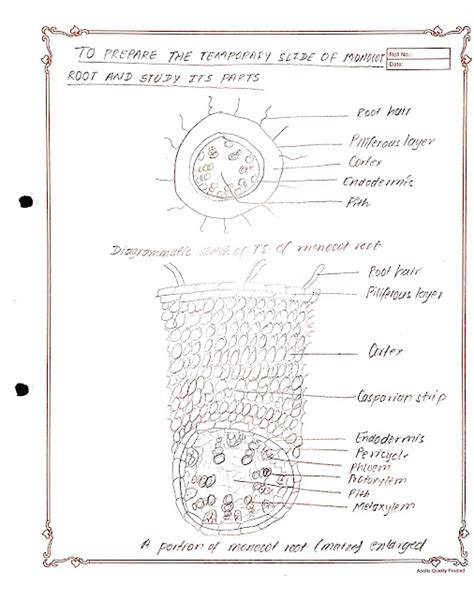 TO PREPARE THE TEMPORARY SLIDE OF MONOCOT
Roll No.:
Date:
ROOT AND STUDY ITS PARTS
Root hair
Piliferous layer
Cortex
Endodermis
Pith
Diagrammatic sketch of T.S. of monocot root
Root hair
Piliferous layer
Cortex
Casparian strip
Endodermis
Pericycle
Phloem
Protoxylem
Pith
Metaxylem
A portion of monocot root (maize) enlarged
Apollo Quality Product